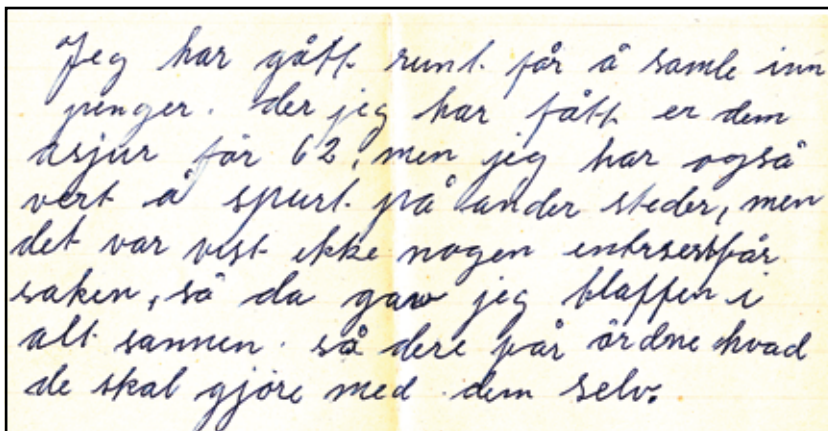 Jeg har gått runt får å samle inn
penger. der jeg har fått er dem
asjur får 62, men jeg har også
vert å spurt på ander steder, men
det var vist ikke nogen entrsert får
saken, så da gaw jeg blaffen i
alt sannen. så dere får ordne hvad
de skal gjöre med dem selv.